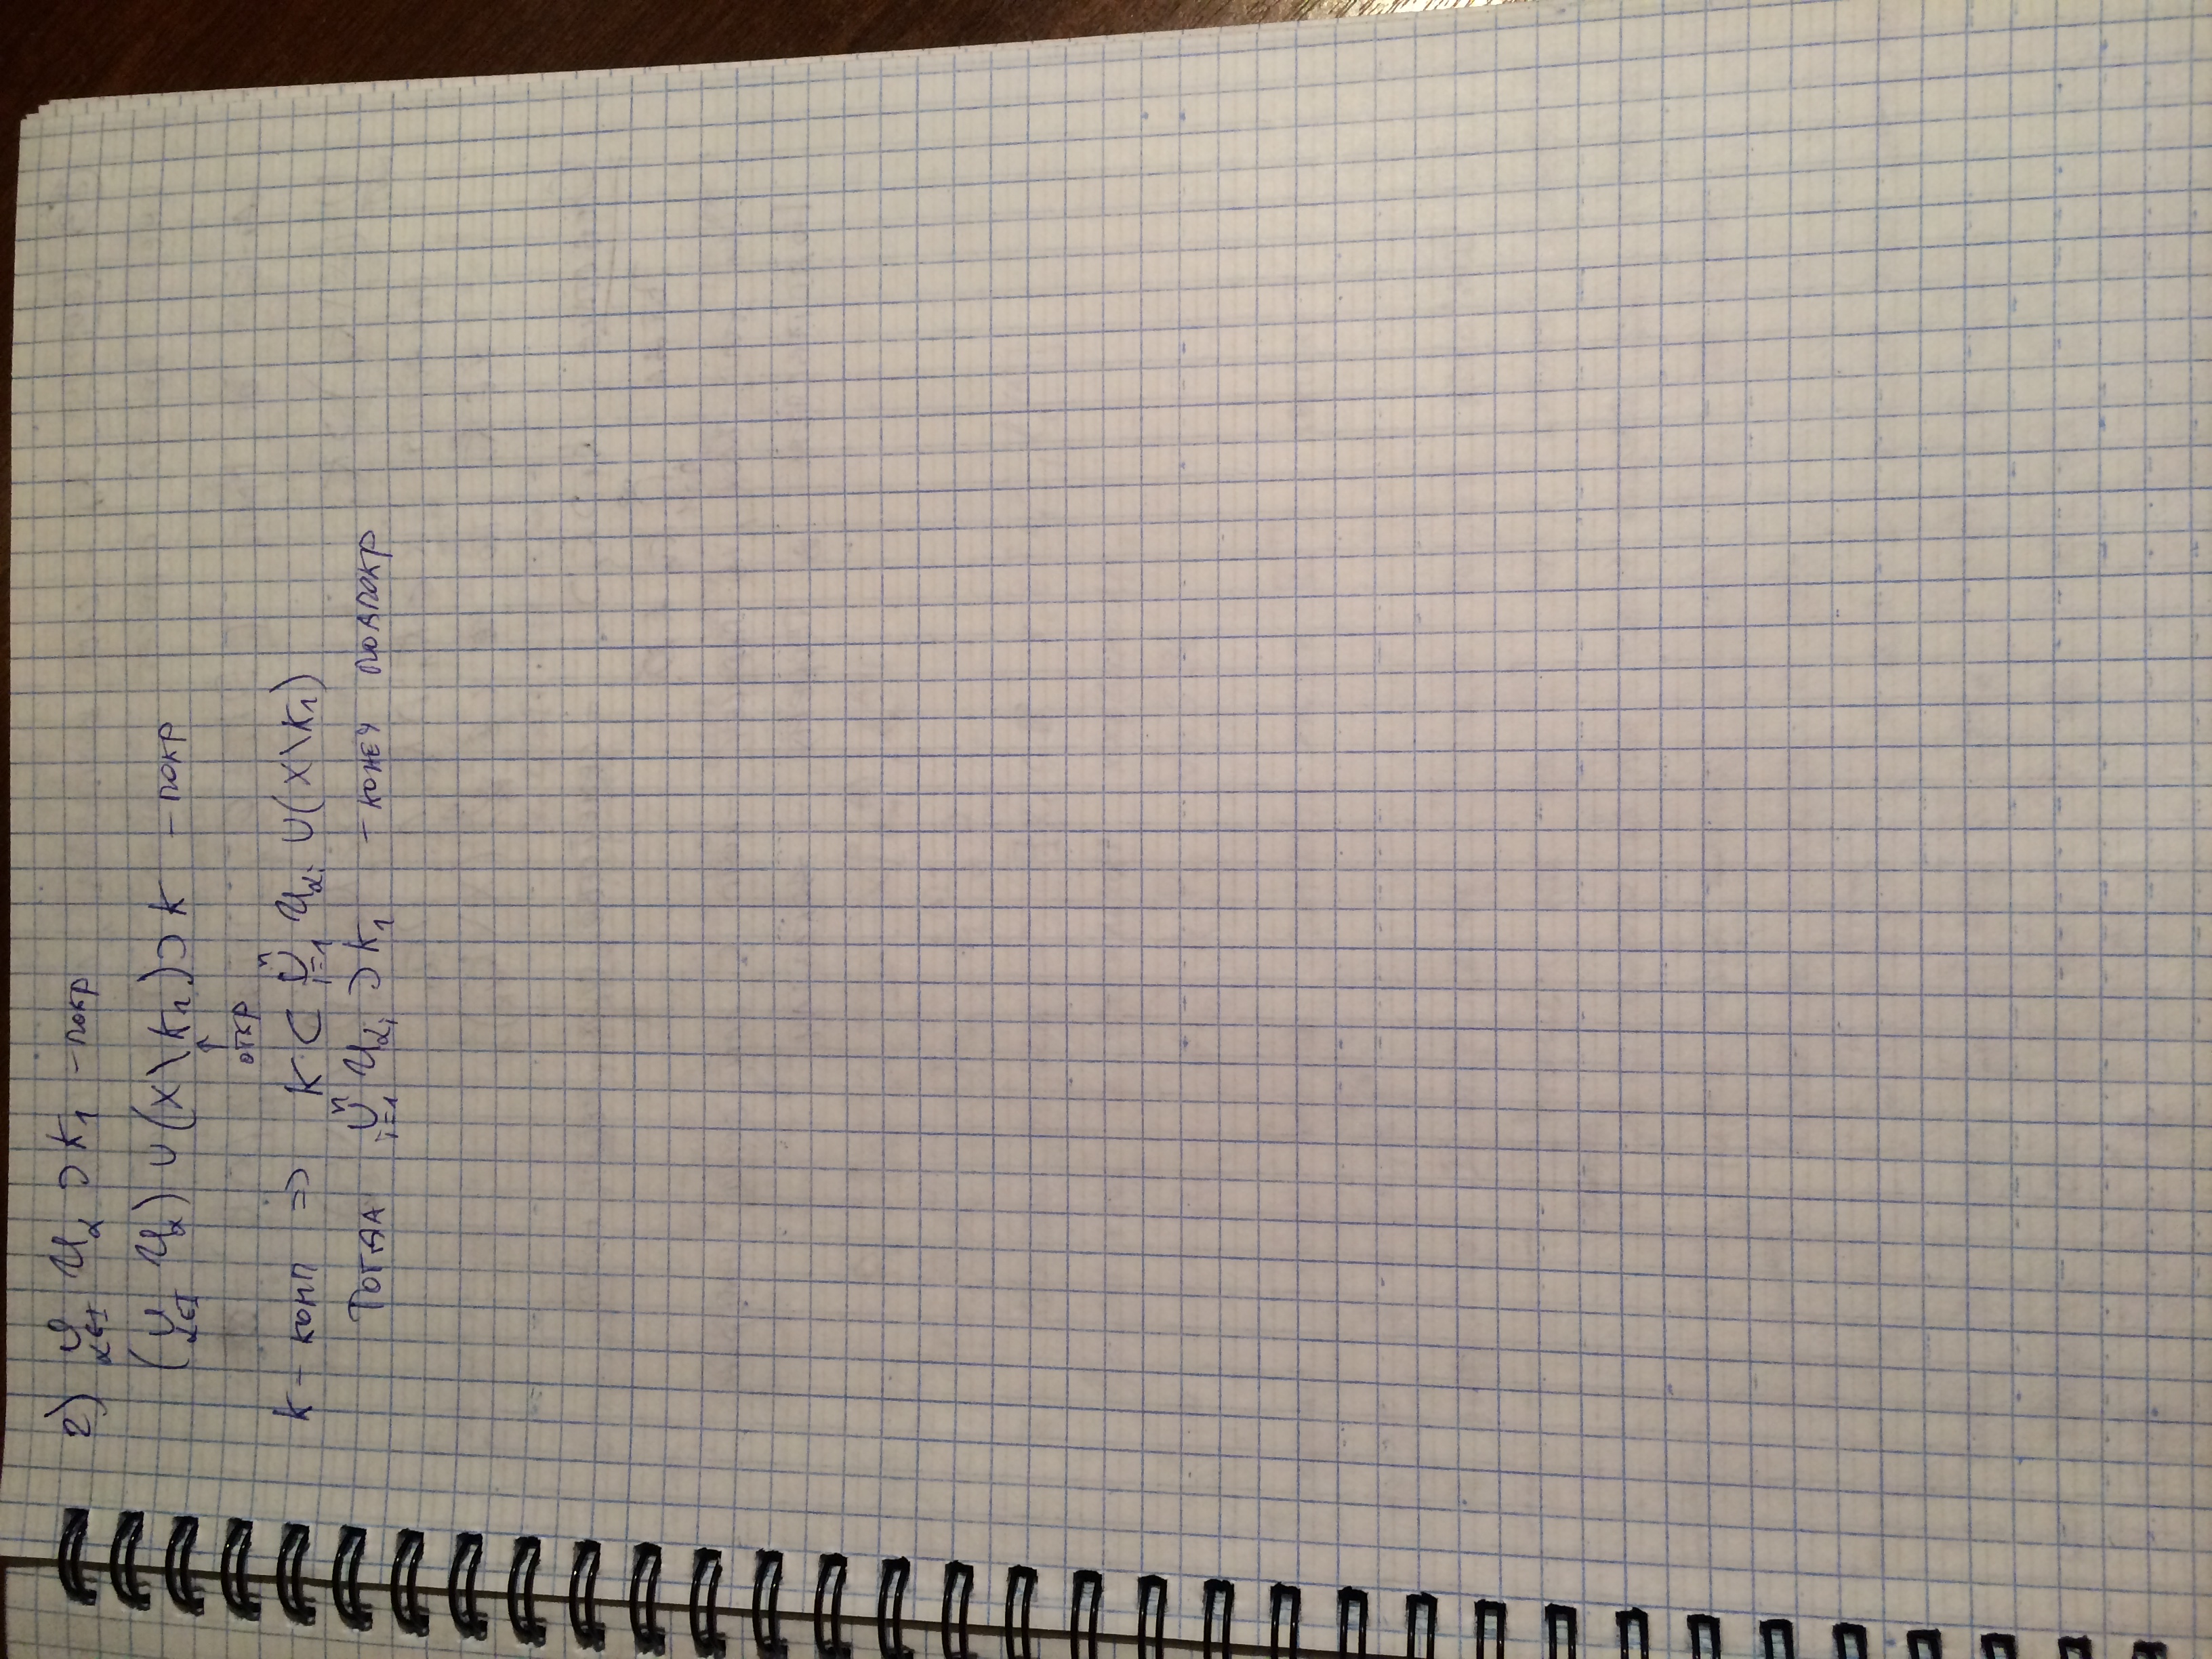 2) ∪ 𝒰α ⊃ K₁ – покр
α∈I
(∪ 𝒰α) ∪ (X \ K₁) ⊃ K – покр
α∈I
↑
откр
K – комп ⇒ K ⊂ ⋃ⁿᵢ₌₁ 𝒰αᵢ ∪ (X \ K₁)
Тогда ⋃ⁿᵢ₌₁ 𝒰αᵢ ⊃ K₁ – конеч подпокр